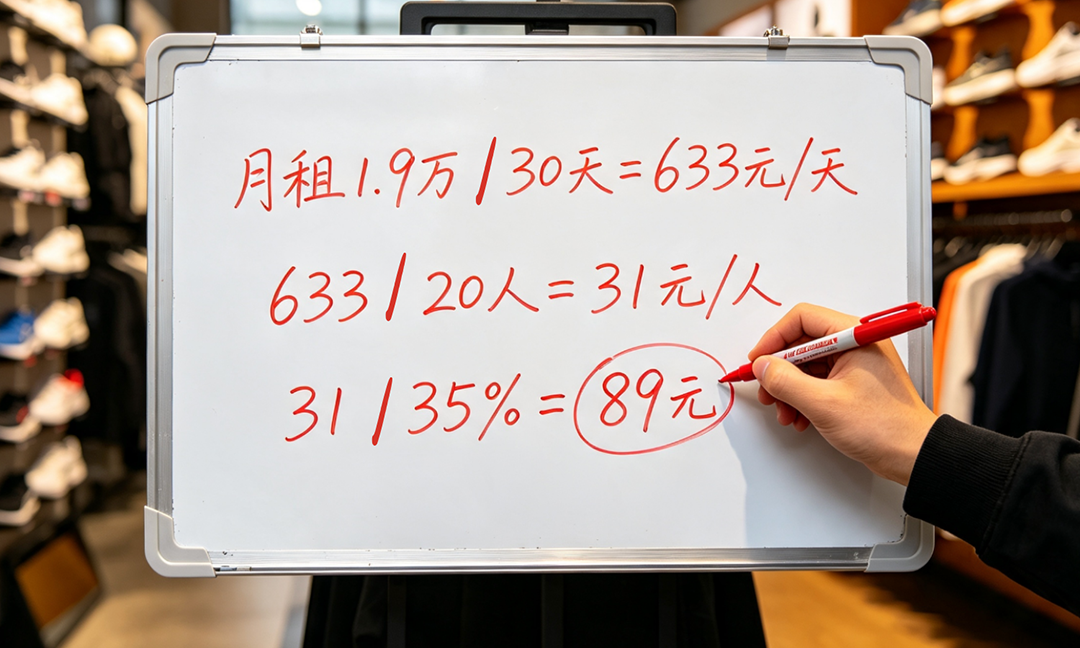 月租1.9万/30天=633元/天
633/20人=31元/人
31/35%=89元